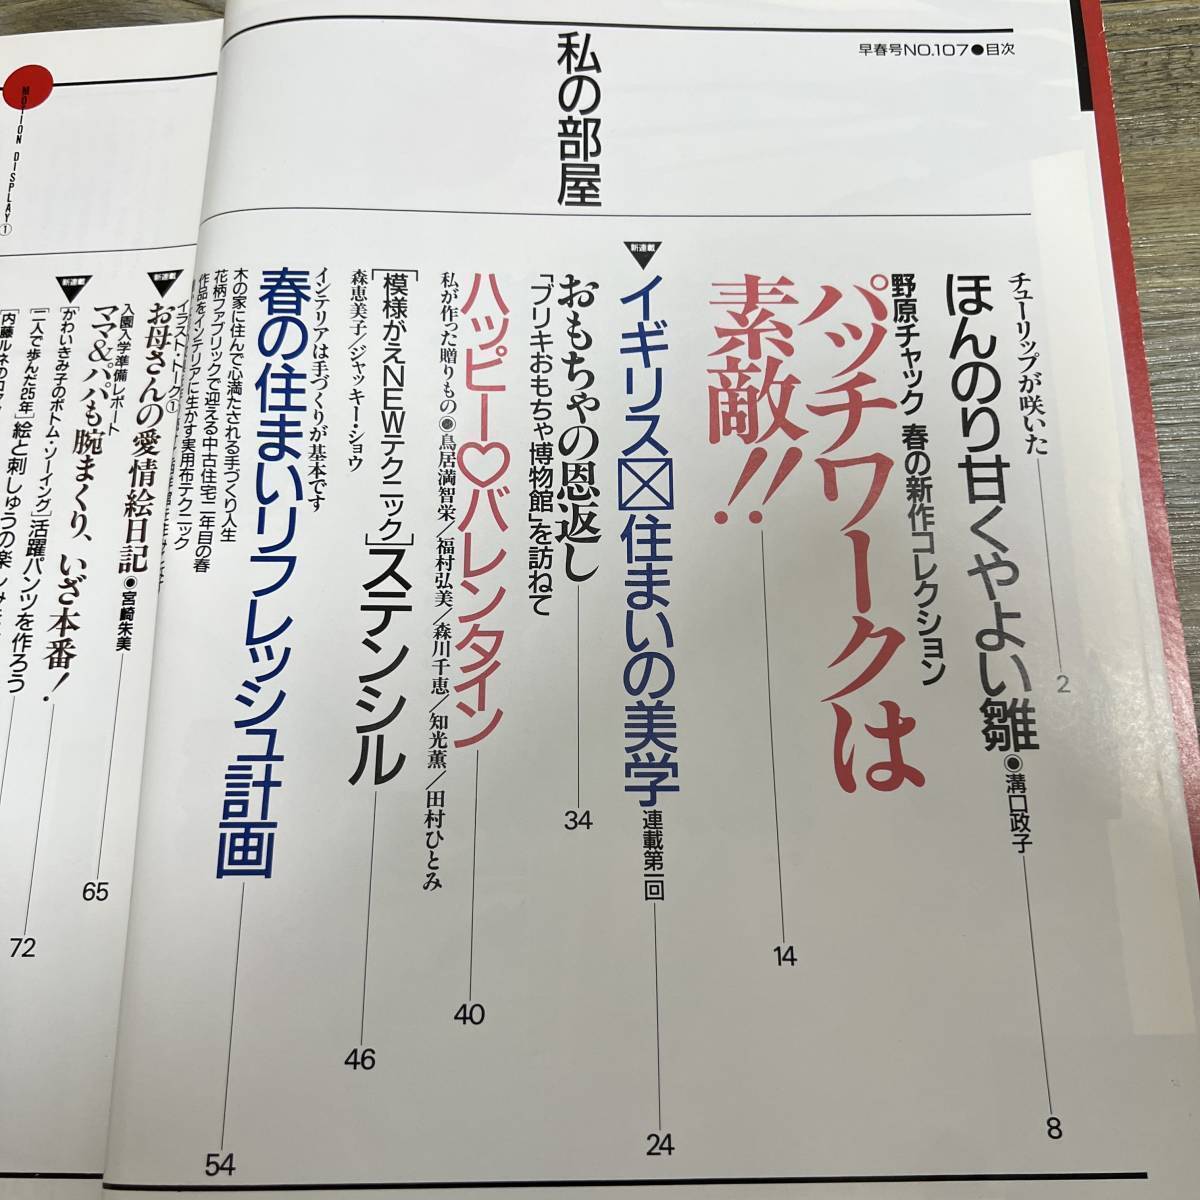 早春号NO.107●目次
私の部屋
チューリップが咲いた
2
ほんのり甘くやよい雛◉溝口政子
8
野原チャック 春の新作コレクション
パッチワークは
素敵!!
14
新連載
イギリス☒住まいの美学
連載第一回
24
おもちゃの恩返し
「ブリキおもちゃ博物館」を訪ねて
34
ハッピー♡バレンタイン
私が作った贈りもの◉鳥居満智栄／福村弘美／森川千恵／知光薫／田村ひとみ
40
[模様がえNEWテクニック]ステンシル
森恵美子／ジャッキー・ショウ
46
インテリアは手づくりが基本です
春の住まいリフレッシュ計画
木の家に住んで心満たされる手づくり人生
花柄ファブリックで迎える中古住宅二年目の春
作品をインテリアに生かす実用布テクニック
54
イラスト・トーク①
新連載
お母さんの愛情絵日記◉宮崎朱美
65
入園入学準備レポート
ママ&パパも腕まくり、いざ本番！
72
新連載
かわいきみ子のボトム・ソーイング]活躍パンツを作ろう
[二人で歩んだ25年]絵と刺しゅうの楽しみ
[内藤ルネの
MOTION DISPLAY①